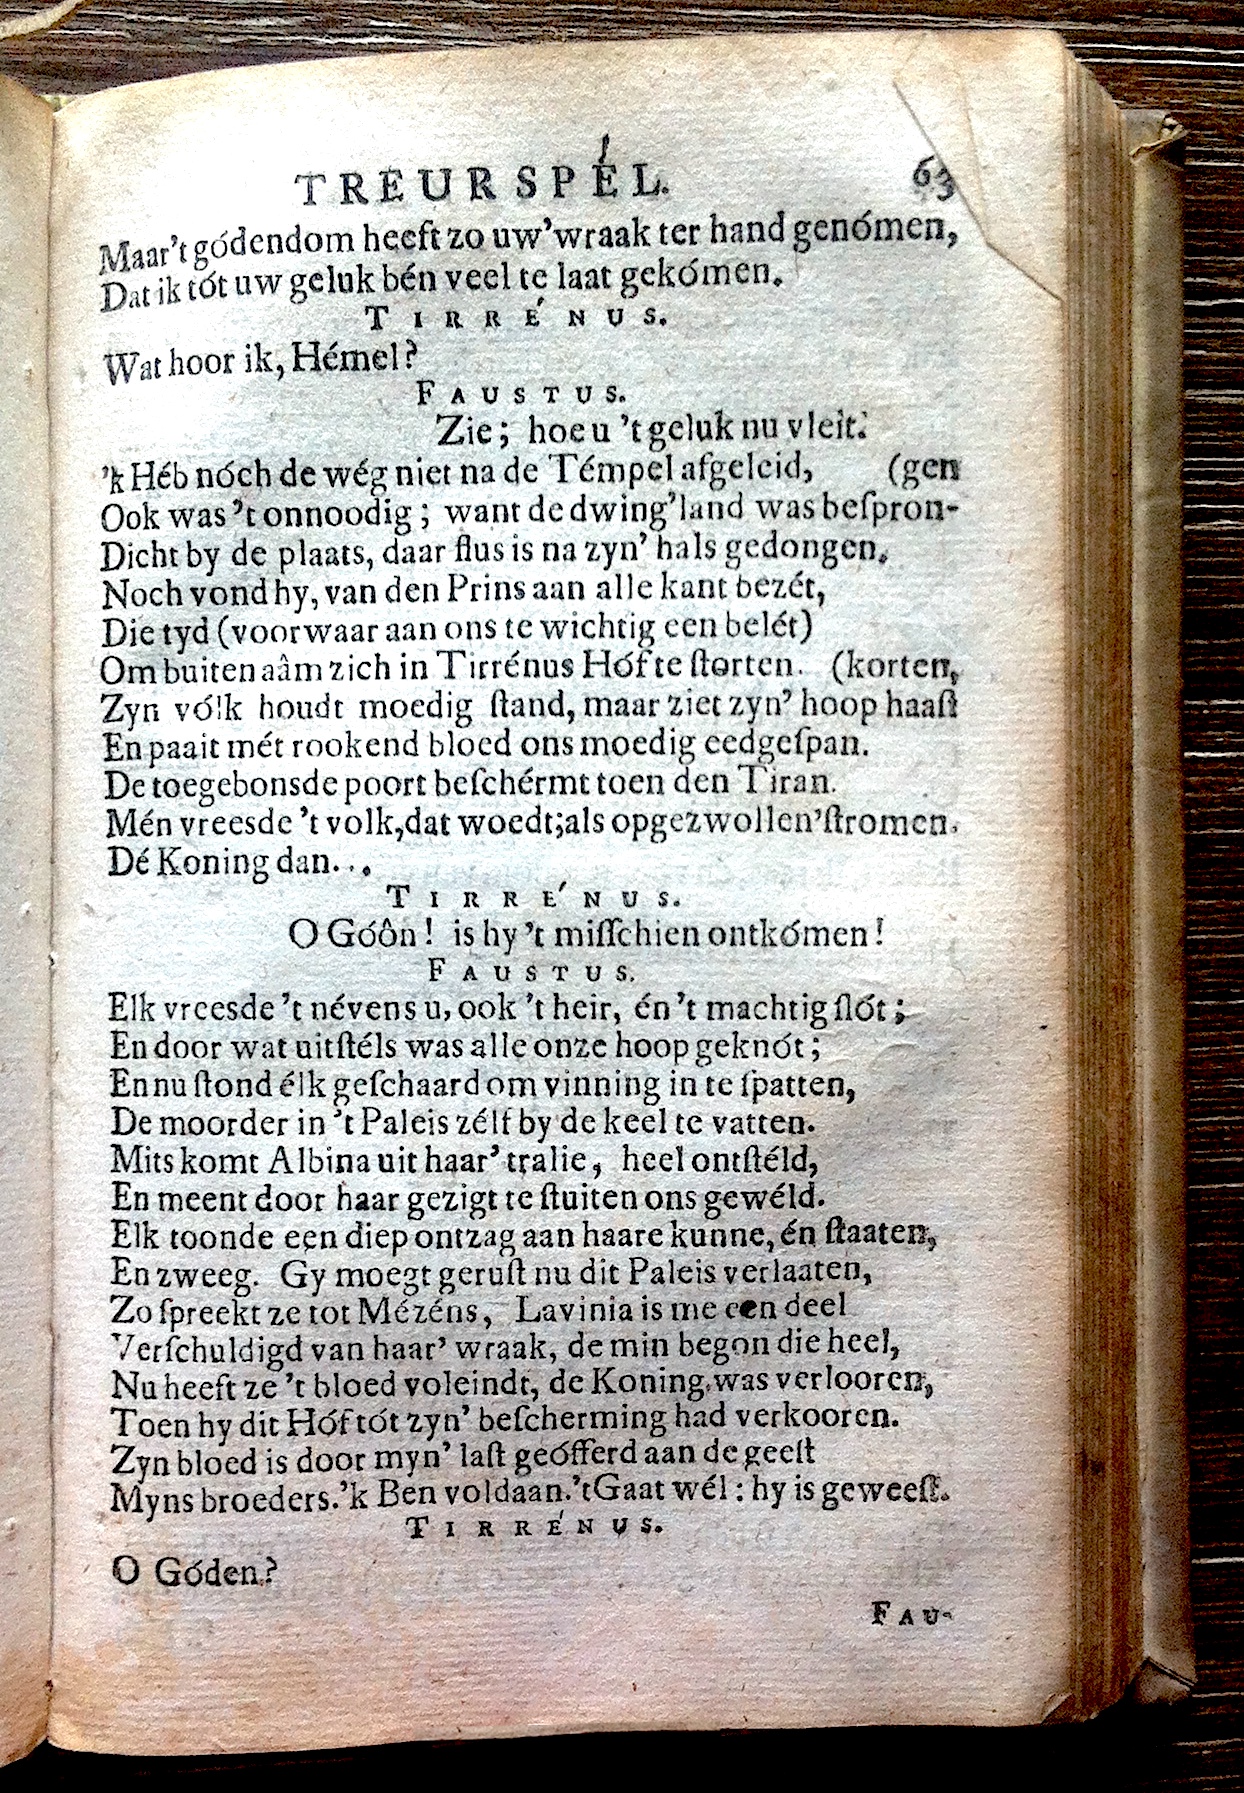 TREURSPÉL. 63
Maar 't gódendom heeft zo uw' wraak ter hand genómen,
Dat ik tót uw geluk bén veel te laat gekómen.
TIRRÉNUS.
Wat hoor ik, Hémel?
FAUSTUS.
Zie; hoe u 't geluk nu vleit.
'k Héb nóch de wég niet na de Témpel afgeleid, (gen
Ook was 't onnoodig; want de dwing'land was beſpron-
Dicht by de plaats, daar flus is na zyn' hals gedongen.
Noch vond hy, van den Prins aan alle kant bezét,
Die tyd (voorwaar aan ons te wichtig een belét)
Om buiten aâm zich in Tirrénus Hóf te ſtorten. (korten,
Zyn vólk houdt moedig ſtand, maar ziet zyn' hoop haaſt
En paait mét rookend bloed ons moedig eedgeſpan.
De toegebonsde poort beſchérmt toen den Tiran.
Mén vreesde 't volk, dat woedt; als opgezwollen' ſtromen.
Dé Koning dan...
TIRRÉNUS.
O Góôn! is hy 't miſſchien ontkómen!
FAUSTUS.
Elk vreesde 't névens u, ook 't heir, én 't machtig ſlót;
En door wat uitſtéls was alle onze hoop geknót;
En nu ſtond élk geſchaard om vinning in te ſpatten,
De moorder in 't Paleis zélf by de keel te vatten.
Mits komt Albina uit haar' tralie, heel ontſtéld,
En meent door haar gezigt te ſtuiten ons gewéld.
Elk toonde een diep ontzag aan haare kunne, én ſtaaten,
En zweeg. Gy moegt geruſt nu dit Paleis verlaaten,
Zo ſpreekt ze tot Mézéns, Lavinia is me een deel
Verſchuldigd van haar' wraak, de min begon die heel,
Nu heeft ze 't bloed voleindt, de Koning was verlooren,
Toen hy dit Hóf tót zyn' beſcherming had verkooren.
Zyn bloed is door myn' laſt geófferd aan de geeſt
Myns broeders. 'k Ben voldaan. 't Gaat wél: hy is geweeſt.
TIRRÉNUS.
O Góden?
FAU-